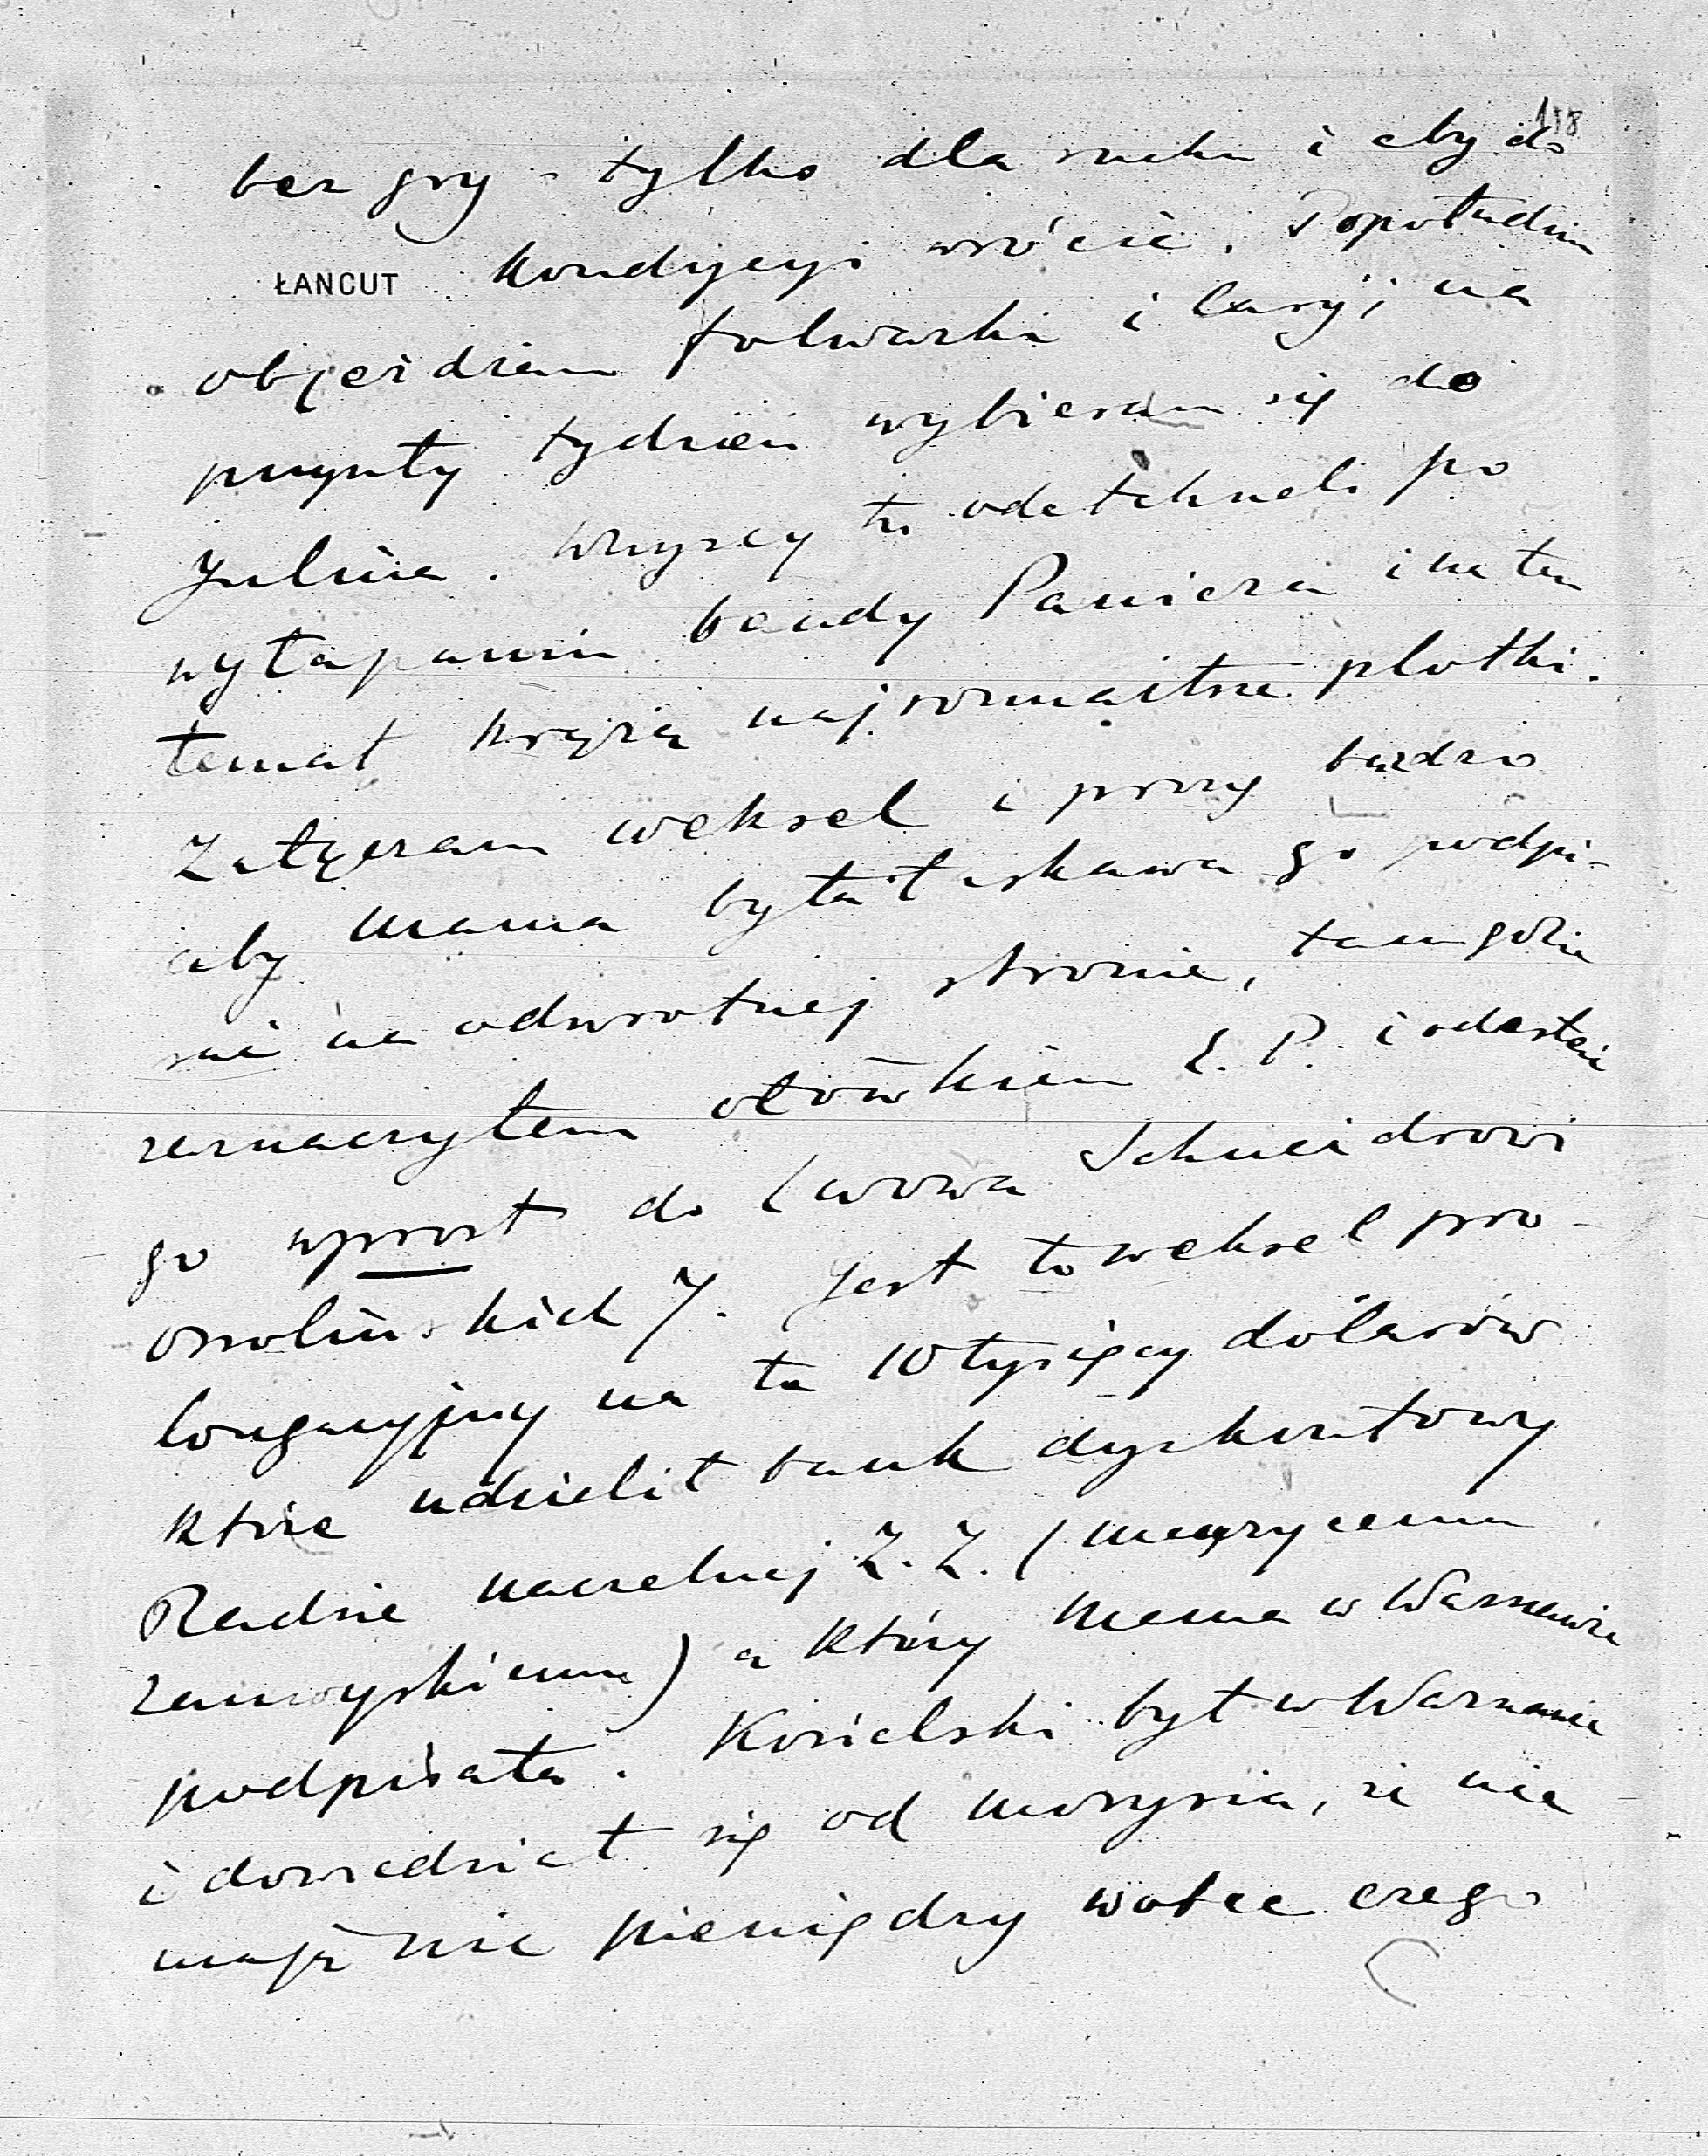 118
bez gry - tylko dla ruchu i aby do
ŁANCUT
kondycyi wrócić. Popołudniu
objeżdżam folwarki i lasy; na
przyszły tydzień wybieram się do
Julina. Wszyscy tu odetchneli po
wyłapaniu bandy Paniera i na ten
temat krążą najrozmaitsze plotki.
Załączam weksel i proszę bardzo
aby Mama była łaskawa go podpi-
sać na odwrotnej stronie, tam gdzie
zaznaczyłem ołówkiem E. P. i odesłać
go wprost do Lwowa Schneidrowi
Ossolińskich 7. Jest to weksel pro-
longacyjny na te 10 tysięcy dolarów
które udzielił bank dyskontowy
Radzie naczelnej Z. Z. (Maurycemu
Zamoyskiemu) a który Mama w Warszawie
podpisała. Kosielski był w Warszawie
i dowiedział się od Morysia, że nie
mają nic pieniędzy wobec czego